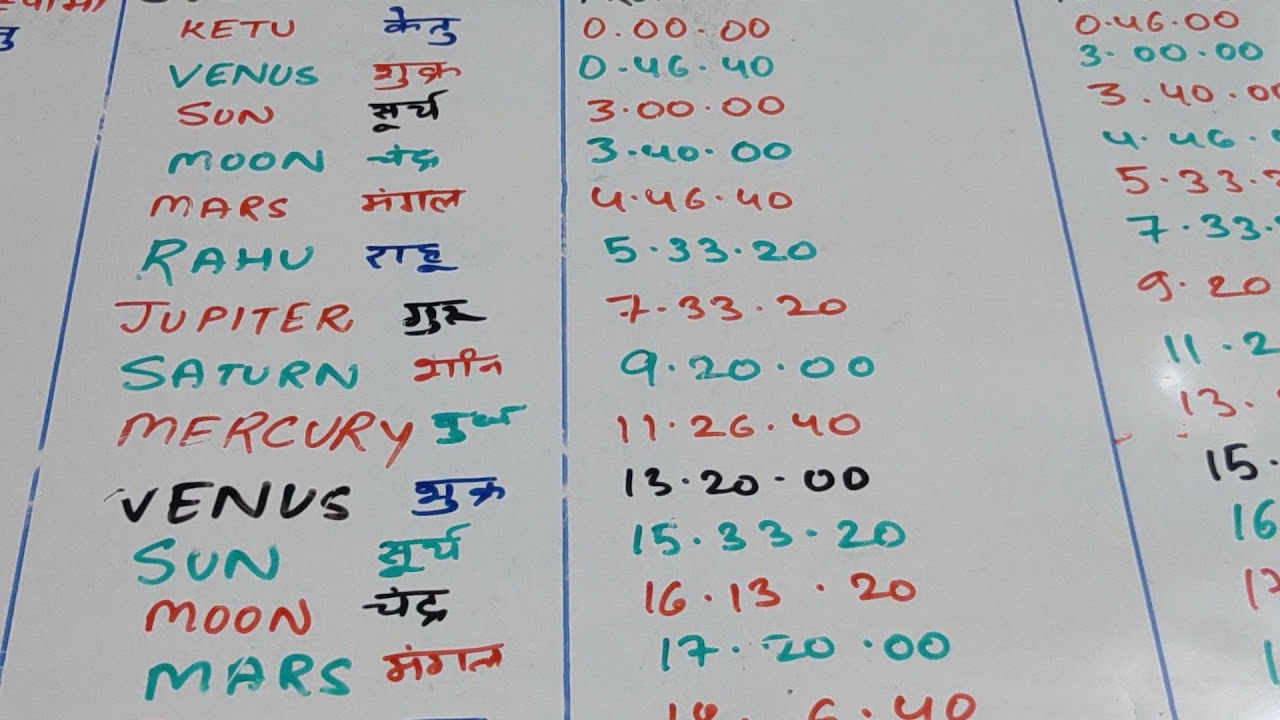 KETU केतु 0.00.00 0.46.00
VENUS शुक्र 0.46.40 3.00.00
SUN सूर्य 3.00.00 3.40.00
MOON चंद्र 3.40.00 4.46.
MARS मंगल 4.46.40 5.33.2
RAHU राहू 5.33.20 7.33.
JUPITER गुरु 7.33.20 9.20
SATURN शनि 9.20.00 11.2
MERCURY बुध 11.26.40 13.
VENUS शुक्र 13.20.00 15.
SUN सूर्य 15.33.20 16
MOON चंद्र 16.13.20 17
MARS मंगल 17.20.00 1
6.40